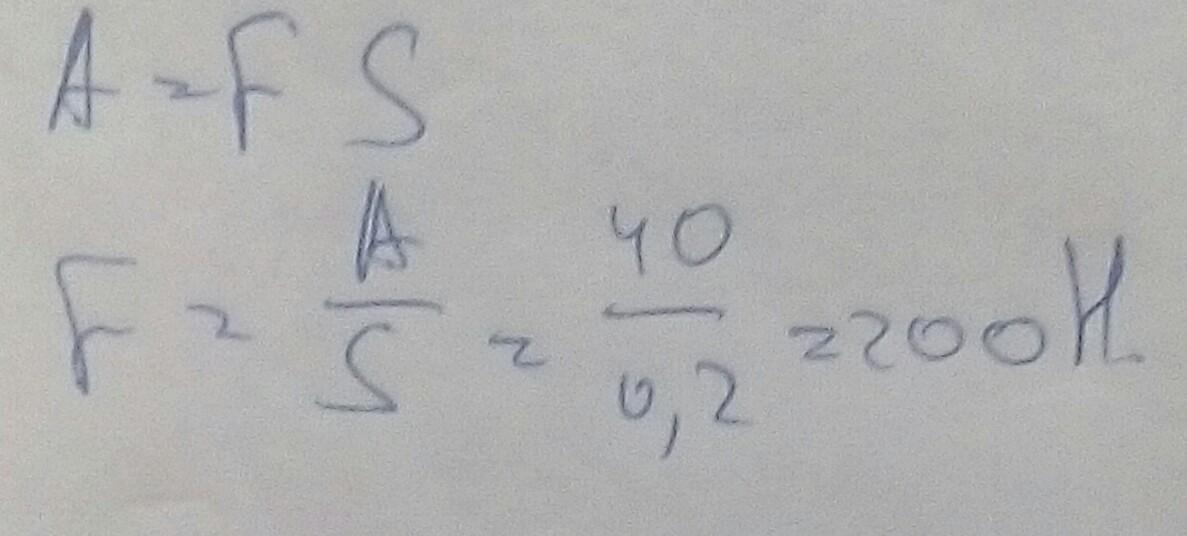 A = F S
F = A/S = 40/0,2 = 200 Н